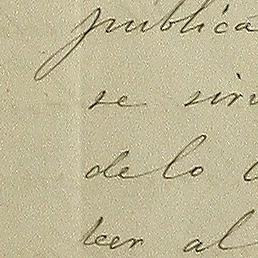 publica
se sirv
delo
leer al